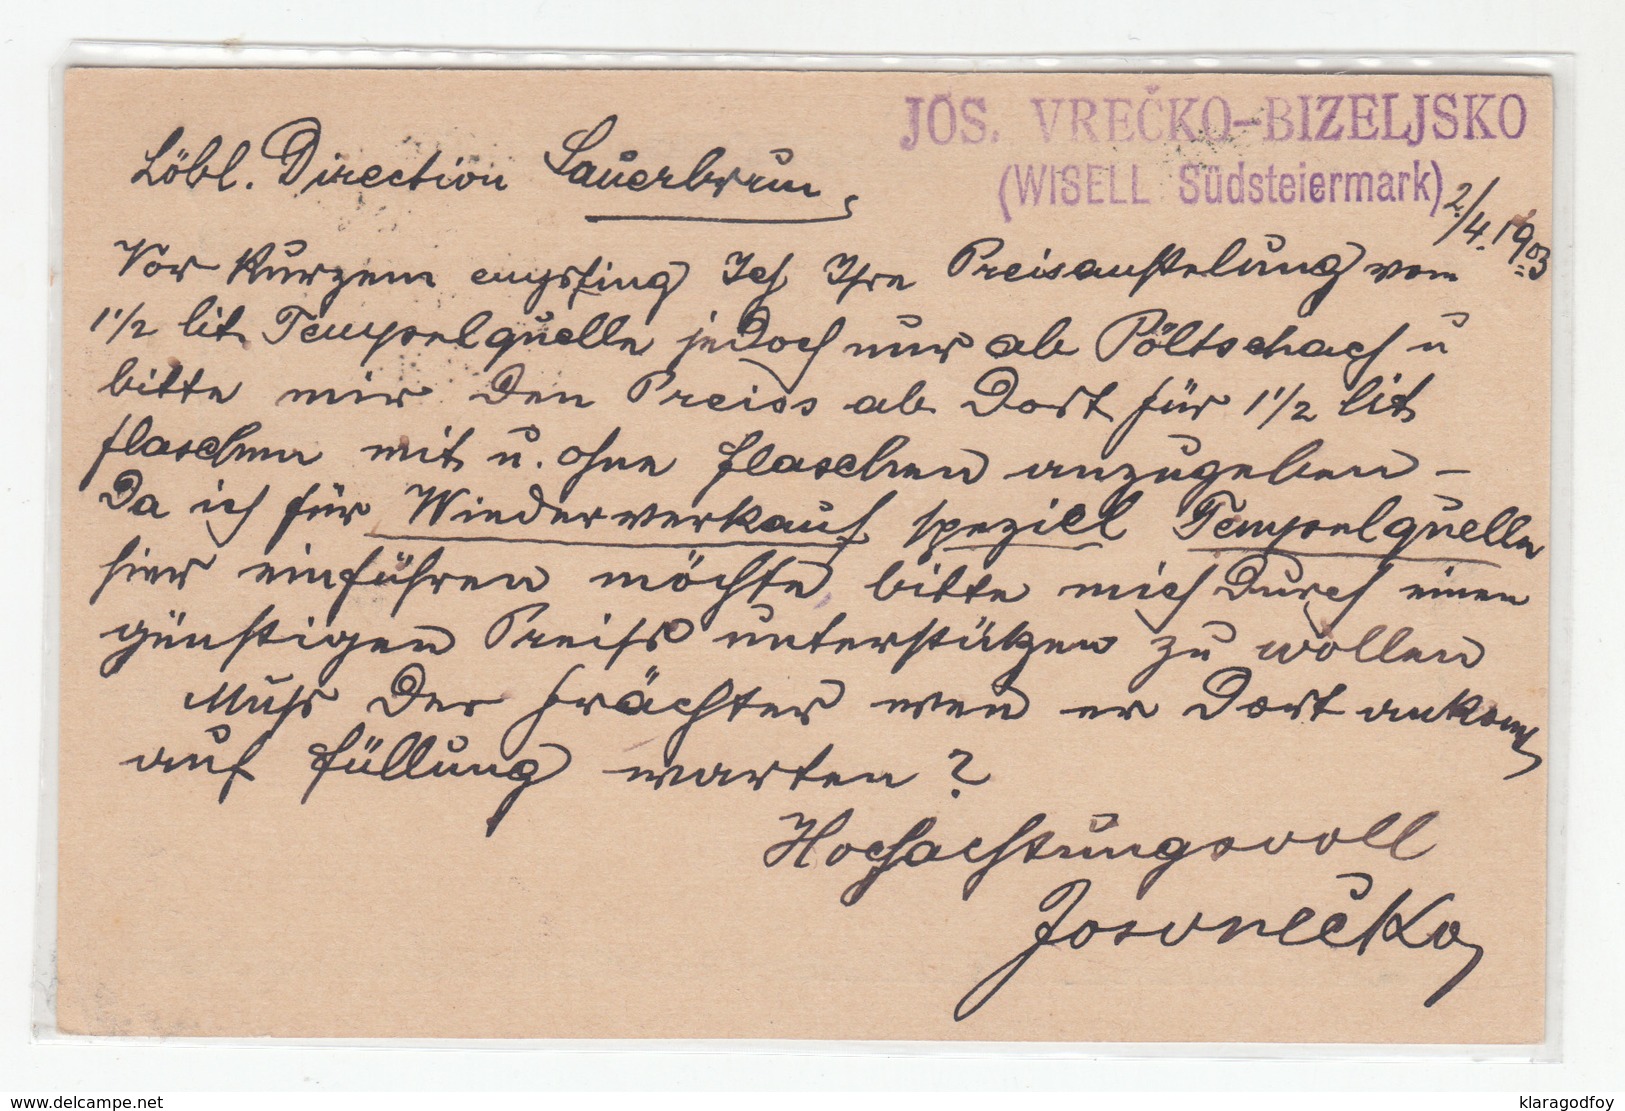 JOS. VREČKO-BIZELJSKO
(WISELL Südsteiermark)
2/4. 1903
Löbl. Direction Sauerbrun,
Vor Kurzem empfing Ich Ihre Preisaufstelung vom
1 1/2 lit Tempelquelle jedoch nur ab Pöltschach u
bitte mir den Preiss ab Dort für 1 1/2 lit
flaschen mit u. ohne flaschen anzugeben –
Da ich für Wiederverkauf speziell Tempelquelle
hier einführen möchte bitte mich Durch einen
günstigen Preiss unterstützen zu wollen
Muss Der Frächter wen er Dort ankomt
auf füllung warten?
Hochachtungsvoll
Jos Vrečko
www.delcampe.net
klaragodfoy